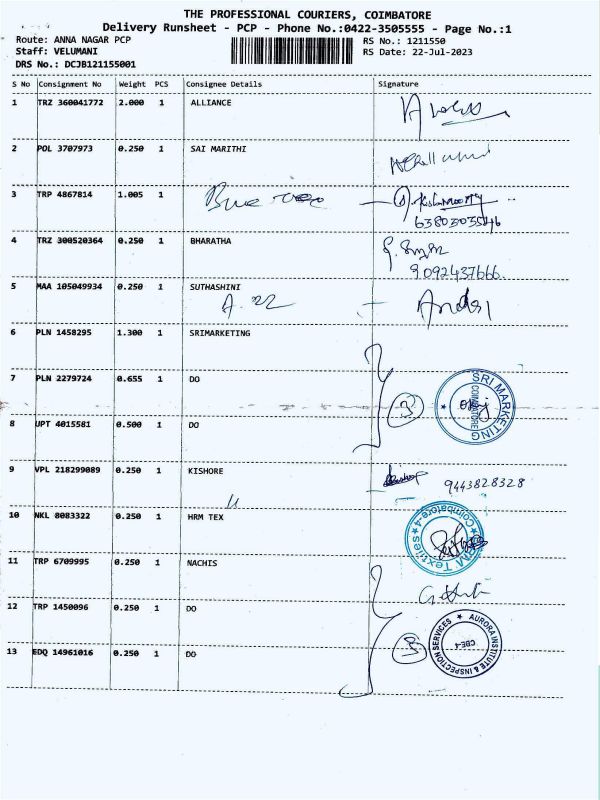 THE PROFESSIONAL COURIERS, COIMBATORE
Delivery Runsheet - PCP - Phone No.:0422-3505555 - Page No.:1
Route: ANNA NAGAR PCP RS No.: 1211550
Staff: VELUMANI RS Date: 22-Jul-2023
DRS No.: DCJB121155001
S No Consignment No Weight PCS Consignee Details Signature
1 TRZ 360041772 2.000 1 ALLIANCE
2 POL 3707973 0.250 1 SAI MARITHI
3 TRP 4867814 1.005 1
6380303546
4 TRZ 300520364 0.250 1 BHARATHA
9092437666
5 MAA 105049934 0.250 1 SUTHASHINI
6 PLN 1458295 1.300 1 SRIMARKETING
7 PLN 2279724 0.655 1 DO 3 SRI MARKETING COIMBATORE
8 UPT 4015581 0.500 1 DO
9 VPL 218299089 0.250 1 KISHORE 9443828328
10 NKL 8083322 0.250 1 HRM TEX Coimbatore-4
11 TRP 6709995 0.250 1 NACHIS
12 TRP 1450096 0.250 1 DO
13 EDQ 14961016 0.250 1 DO 3 AURORA INSTITUTE & INSPECTION SERVICES CBE-4